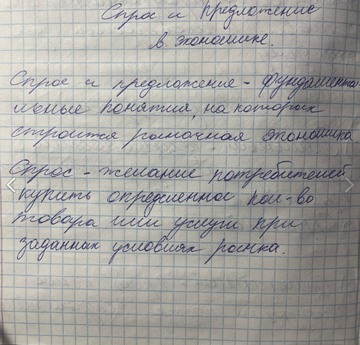 Спрос и предложение
в экономике.
Спрос и предложение - фундамента
льные понятия, на которых
строится рыночная экономика
Спрос - желание потребителей
купить определенное кол-во
товара или услуги при
заданных условиях рынка.